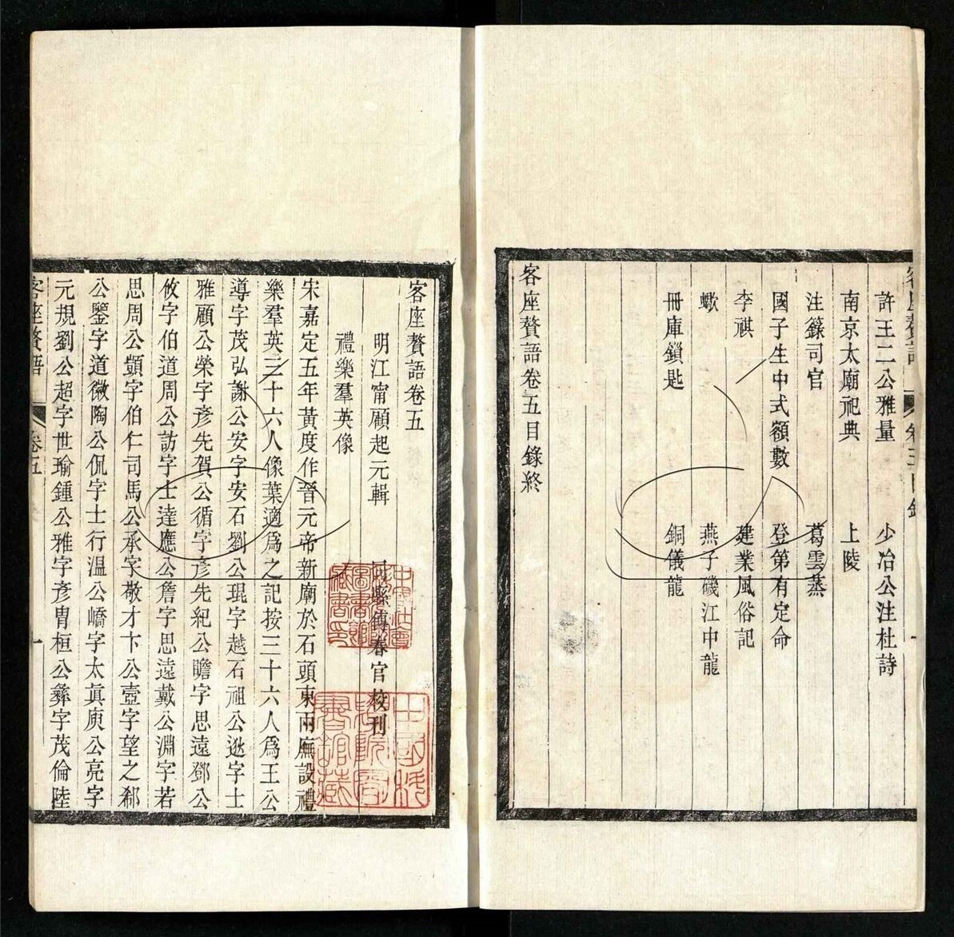 許王二公雅量　少冶公注杜詩
南京太廟祀典　上陵
注籙司官　葛雲蒸
國子生中式額數　登第有定命
李祺　建業風俗記
蠍　燕子磯江中龍
冊庫鎖匙　銅儀龍
客座贅語卷五目錄終
客座贅語卷五
明江甯顧起元輯　春官校刊
禮樂羣英像
宋嘉定五年黃度作晉元帝新廟於石頭東兩廡設禮
樂羣英三十六人像葉適爲之記按三十六人爲王公
導字茂弘謝公安字安石劉公琨字越石祖公逖字士
雅顧公榮字彥先賀公循字彥先紀公瞻字思遠鄧公
攸字伯道周公訪字士達應公詹字思遠戴公淵字若
思周公顗字伯仁司馬公承字敬才卞公壼字望之郗
公鑒字道徽陶公侃字士行溫公嶠字太眞庾公亮字
元規劉公超字世瑜鍾公雅字彥胄桓公彝字茂倫陸
客座贅語　卷五　一